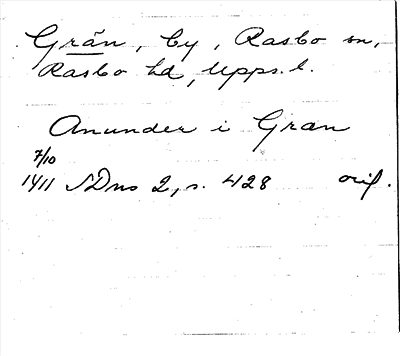 Grän, by, Rasbo sn,
Rasbo hd, Upps. l.
Anunder i Gran
7/10
1411 SDns 2, s. 428 orig.